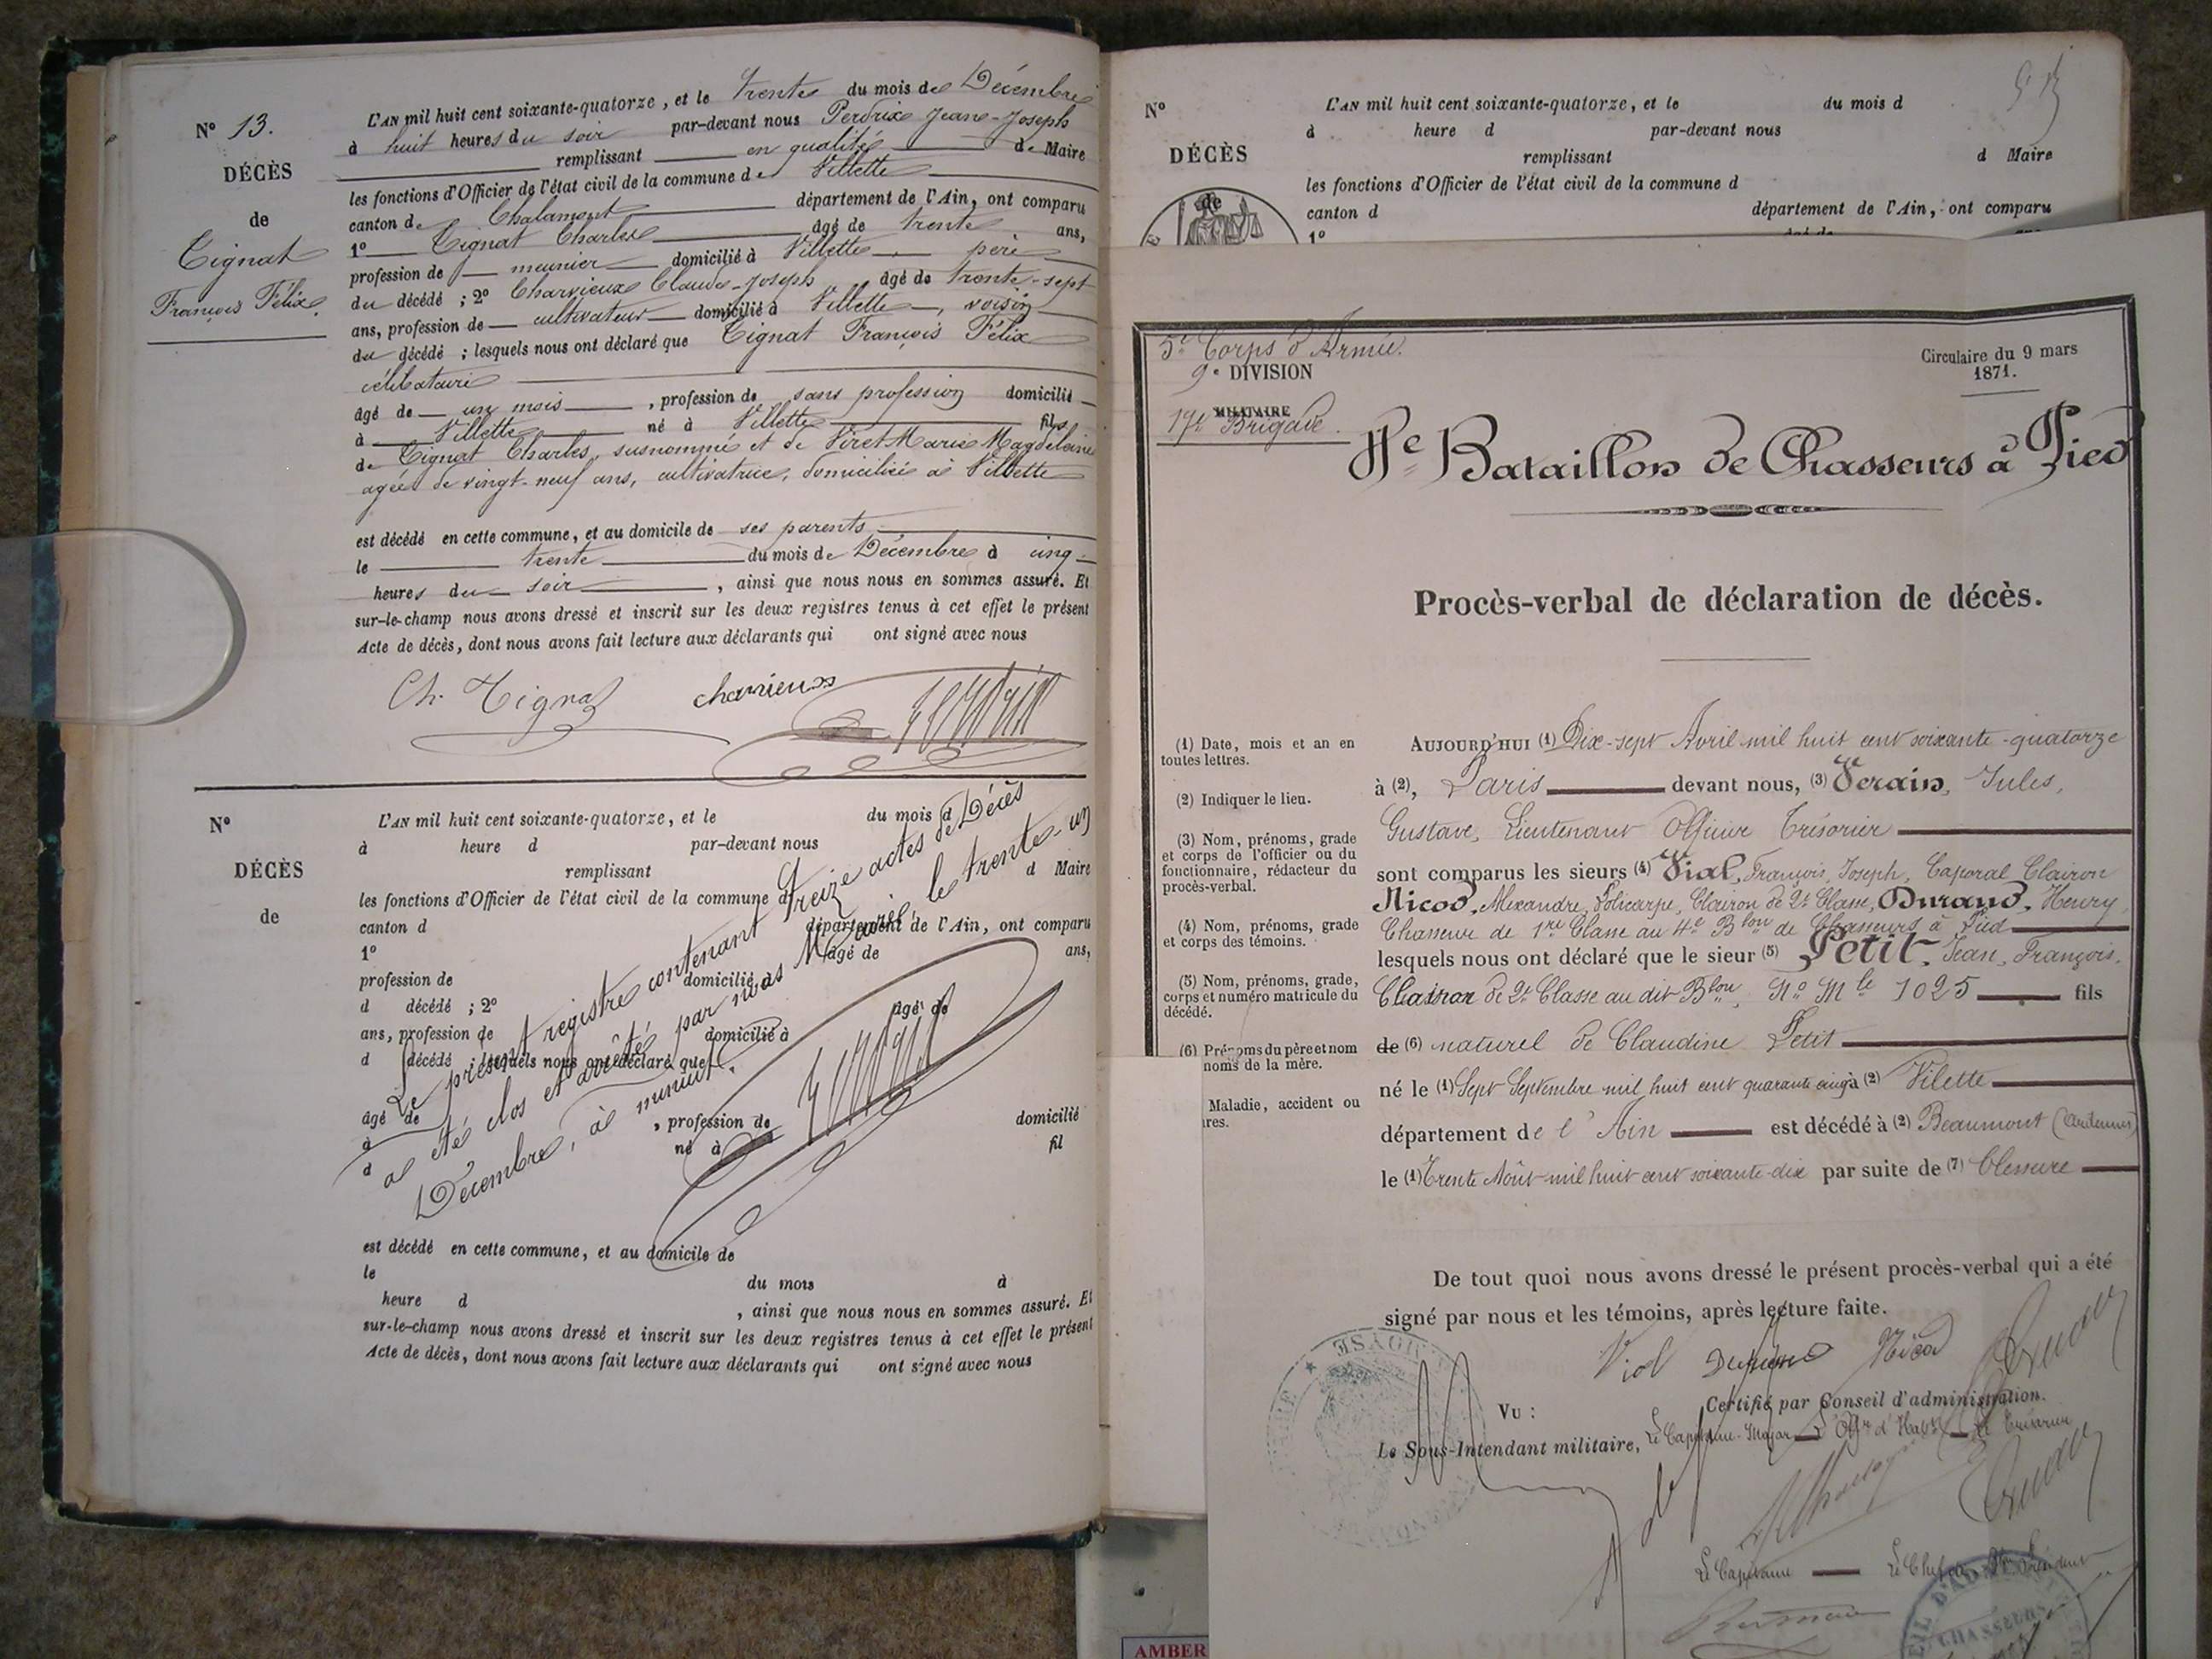 N° 13.
DÉCÈS
de
Tignat
François Félix.
L'AN mil huit cent soixante-quatorze, et le trente du mois de Décembre
à huit heures du soir par-devant nous Perdrix Jean-Joseph
remplissant en qualité de Maire
les fonctions d'Officier de l'état civil de la commune de Villette
canton de Chalamont département de l'Ain, ont comparu
1° Tignat Charles âgé de trente ans,
profession de meunier domicilié à Villette, père
du décédé ; 2° Charvieux Claude-Joseph âgé de trente-sept
ans, profession de cultivateur domicilié à Villette, voisin
du décédé ; lesquels nous ont déclaré que Tignat François Félix
célibataire
âgé de un mois, profession de sans profession domicilié
à Villette né à Villette fils
de Tignat Charles, susnommé et de Viret Marie Magdelaine
agée de vingt-neuf ans, cultivatrice, domiciliée à Villette
est décédé en cette commune, et au domicile de ses parents
le trente du mois de Décembre à cinq
heures du soir, ainsi que nous nous en sommes assuré. Et
sur-le-champ nous avons dressé et inscrit sur les deux registres tenus à cet effet le présent
Acte de décès, dont nous avons fait lecture aux déclarants qui ont signé avec nous
Ch. Tignat charvieux Perdrix
N°
DÉCÈS
de
L'AN mil huit cent soixante-quatorze, et le du mois d
à heure d par-devant nous
remplissant d Maire
les fonctions d'Officier de l'état civil de la commune d
canton d département de l'Ain, ont comparu
1° âgé de ans,
profession de domicilié à
d décédé ; 2° âgé de
ans, profession de domicilié à
d décédé ; lesquels nous ont déclaré que
âgé de , profession de domicilié
à né à fil
d
Le présent registre contenant treize actes de Décès
a été clos et arrêté par nous Maire le trente-un
Décembre, à minuit.
est décédé en cette commune, et au domicile de
le du mois à
heure d , ainsi que nous nous en sommes assuré. Et
sur-le-champ nous avons dressé et inscrit sur les deux registres tenus à cet effet le présent
Acte de décès, dont nous avons fait lecture aux déclarants qui ont signé avec nous
N°
DÉCÈS
de
L'AN mil huit cent soixante-quatorze, et le du mois d
à heure d par-devant nous
remplissant d Maire
les fonctions d'Officier de l'état civil de la commune d
canton d département de l'Ain, ont comparu
1°
5e Corps d'Armée.
9e DIVISION
MILITAIRE
17e Brigade.
Circulaire du 9 mars
1871.
4e Bataillon de Chasseurs à Pied
Procès-verbal de déclaration de décès.
(1) Date, mois et an en
toutes lettres.
(2) Indiquer le lieu.
(3) Nom, prénoms, grade
et corps de l'officier ou du
fonctionnaire, rédacteur du
procès-verbal.
(4) Nom, prénoms, grade
et corps des témoins.
(5) Nom, prénoms, grade,
corps et numéro matricule du
décédé.
(6) Prénoms du père et nom
noms de la mère.
Maladie, accident ou
res.
AUJOURD'HUI (1) Dix-sept Avril mil huit cent soixante-quatorze
à (2), Paris devant nous, (3) Verain, Jules,
Gustave, Lieutenant Officier Trésorier
sont comparus les sieurs (4) Vial, François, Joseph, Caporal Clairon
Nicod, Alexandre, Policarpe, Clairon de 2e Classe, Durand, Henry,
Chasseur de 1re Classe au 4e Blon de Chasseurs à Pied
lesquels nous ont déclaré que le sieur (5) Petit, Jean, François,
Chasseur de 2e Classe au dit Blon, No Mle 1025 fils
de (6) naturel de Claudine Petit
né le (1) Sept Septembre mil huit cent quarante cinq à (2) Vilette
département de l'Ain est décédé à (2) Beaumont (Ardennes)
le (1) Trente Août mil huit cent soixante-dix par suite de (7) blessure
De tout quoi nous avons dressé le présent procès-verbal qui a été
signé par nous et les témoins, après lecture faite.
Vial Durand Nicod
Vu :
Certifié par Conseil d'administration.
Le Sous-Intendant militaire, Le Capitaine-Major L'Offr d'Habt Le Trésorier
Le Capitaine Le Chef de Bon Président
CHASSEURS
AMBER